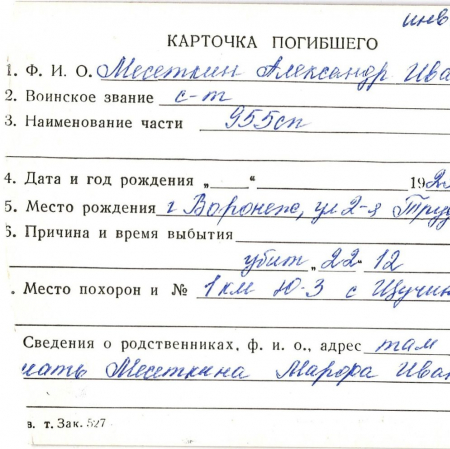 инв
КАРТОЧКА ПОГИБШЕГО
1. Ф. И. О. Месеткин Александр Ива
2. Воинское звание с-т
3. Наименование части 955сп
4. Дата и год рождения „ “ 192
5. Место рождения г Воронеж, ул 2-я Труд
6. Причина и время выбытия
убит „ 22-12
. Место похорон и № 1 км Ю-З с Щучин
Сведения о родственниках, ф. и. о., адрес там
мать Месеткина Иван
в. т. Зак. 527